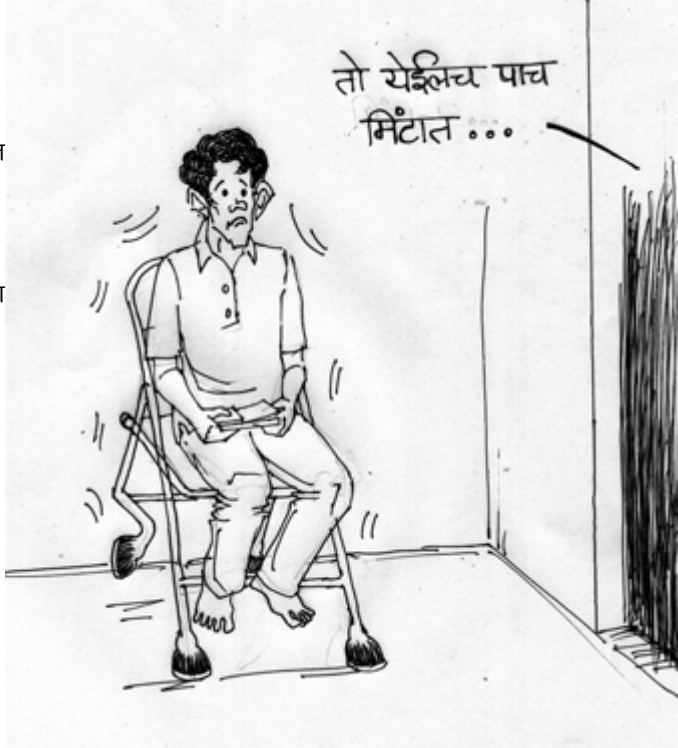 तो येईलच पाच
मिंटात...